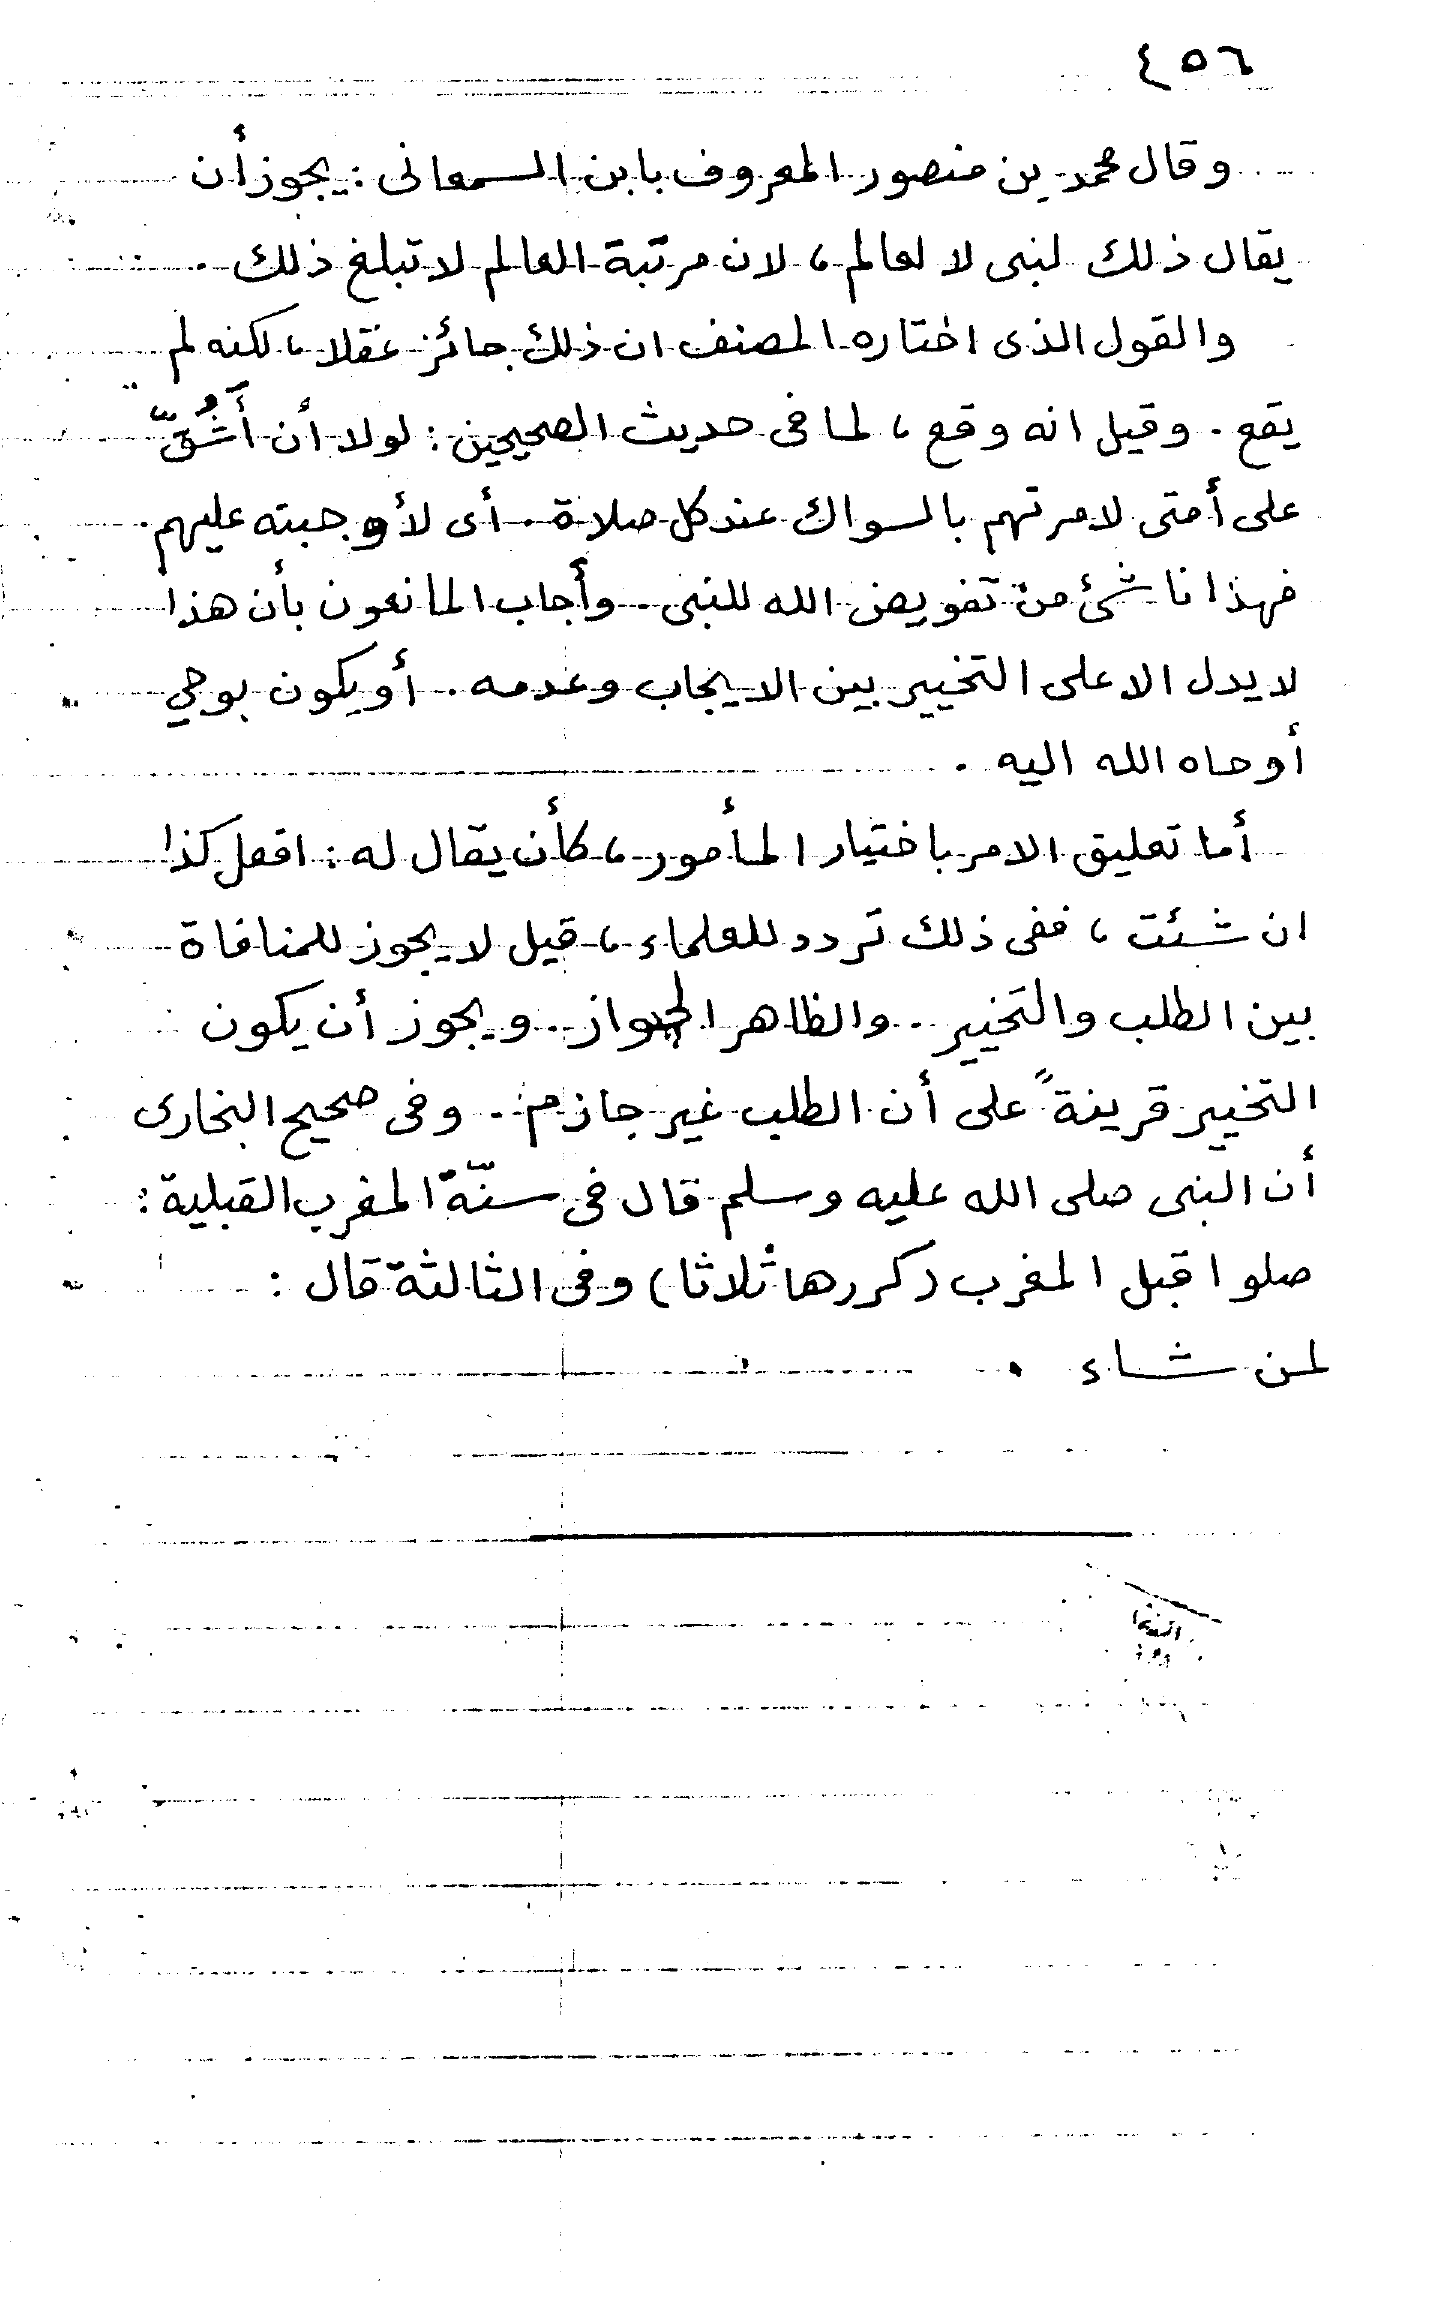 ٤٥٦
وقال محمد بن منصور المعروف بابن السمعانى : يجوز أن
يقال ذلك لنبى لا لعالم ، لان مرتبة العالم لا تبلغ ذلك .
والقول الذى اختاره المصنف ان ذلك جائز عقلا ، لكنه لم
يقع . وقيل انه وقع ، لما فى حديث الصحيحين : لولا أن أَشُقَّ
على أمتى لامرتهم بالسواك عند كل صلاة . أى لأوجبته عليهم .
فهذا ناشئ من تفويض الله للنبى . وأجاب المانعون بأن هذا
لا يدل الا على التخيير بين الايجاب وعدمه . أو يكون بوحي
أوحاه الله اليه .
أما تعليق الامر باختيار المأمور ، كأن يقال له : افعل كذا
ان شئت ، ففى ذلك تردد للعلماء ، قيل لا يجوز للمنافاة
بين الطلب والتخيير . والظاهر الجواز . ويجوز أن يكون
التخيير قرينةً على أن الطلب غير جازم . وفى صحيح البخارى
أن النبى صلى الله عليه وسلم قال فى سنّة المغرب القبلية :
صلوا قبل المغرب (كررها ثلاثا) وفى الثالثة قال :
لمن شاء .